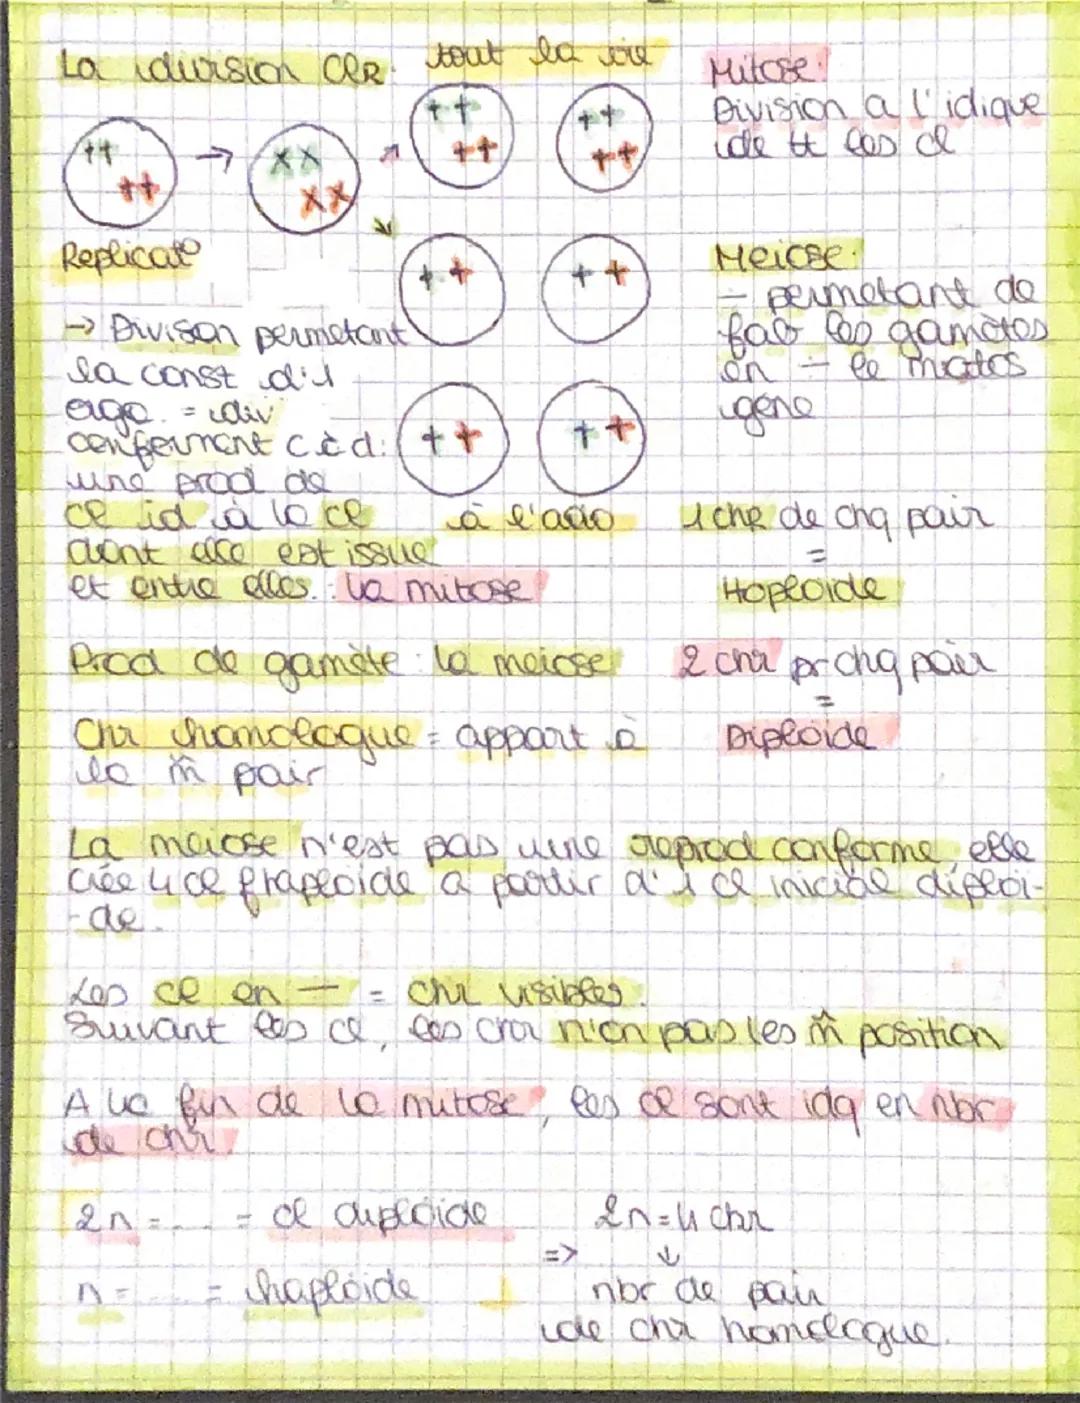 La division CLR. tout la vie
Mitose:
Division a l'idique
de tt les cl
Replicat°
Meiose:
- permetant de
fab les gamètes
en ÷ le
gene
→ Divison permetant
la const d'1
orga. = div
confermant c.à.d:
une prod de
cl id à la cl
dont elle est issue
et entre elles.: la mitose
à l'ado
1 chr de chq pair
=
Haploide
Prod de gamète: la meiose
2 chr pr chq pair
=
Diploïde
Chr homologue = appart à
la m̂ pair
La meiose n'est pas une reprod conforme, elle
crée 4 cl haploïde a partir d'1 cl inicial diploi-
-de.
Les cl en ÷ = chr visibles.
Suivant les cl, les chr n'on pas les m̂ position
A la fin de la mitose, les cl sont idq en nbr
de chr.
2n = .... = cl diploïde
n = .... = haploïde
=>
2n = 4 chr
↓
nbr de pair
de chr homologue.